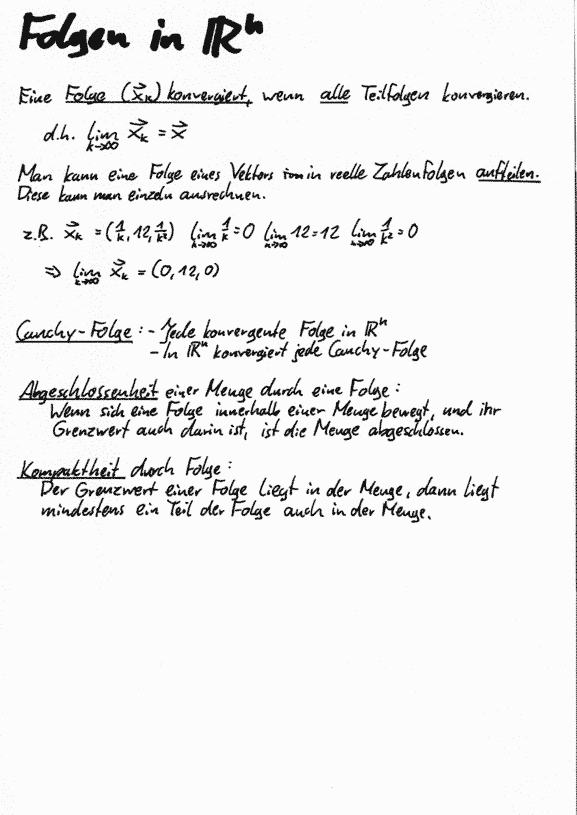 Folgen in ℝⁿ
Eine Folge (x⃗ₖ) konvergiert, wenn alle Teilfolgen konvergieren.
d.h. lim k→∞ x⃗ₖ = x⃗
Man kann eine Folge eines Vektors in reelle Zahlenfolgen aufteilen.
Diese kann man einzeln ausrechnen.
z.B. x⃗ₖ = (1/k, 12, 1/k²) lim k→∞ 1/k = 0 lim k→∞ 12 = 12 lim k→∞ 1/k² = 0
⇒ lim k→∞ x⃗ₖ = (0, 12, 0)
Cauchy-Folge: - Jede konvergente Folge in ℝⁿ
- In ℝⁿ konvergiert jede Cauchy-Folge
Abgeschlossenheit einer Menge durch eine Folge:
Wenn sich eine Folge innerhalb einer Menge bewegt, und ihr
Grenzwert auch darin ist, ist die Menge abgeschlossen.
Kompaktheit durch Folge:
Der Grenzwert einer Folge liegt in der Menge, dann liegt
mindestens ein Teil der Folge auch in der Menge.